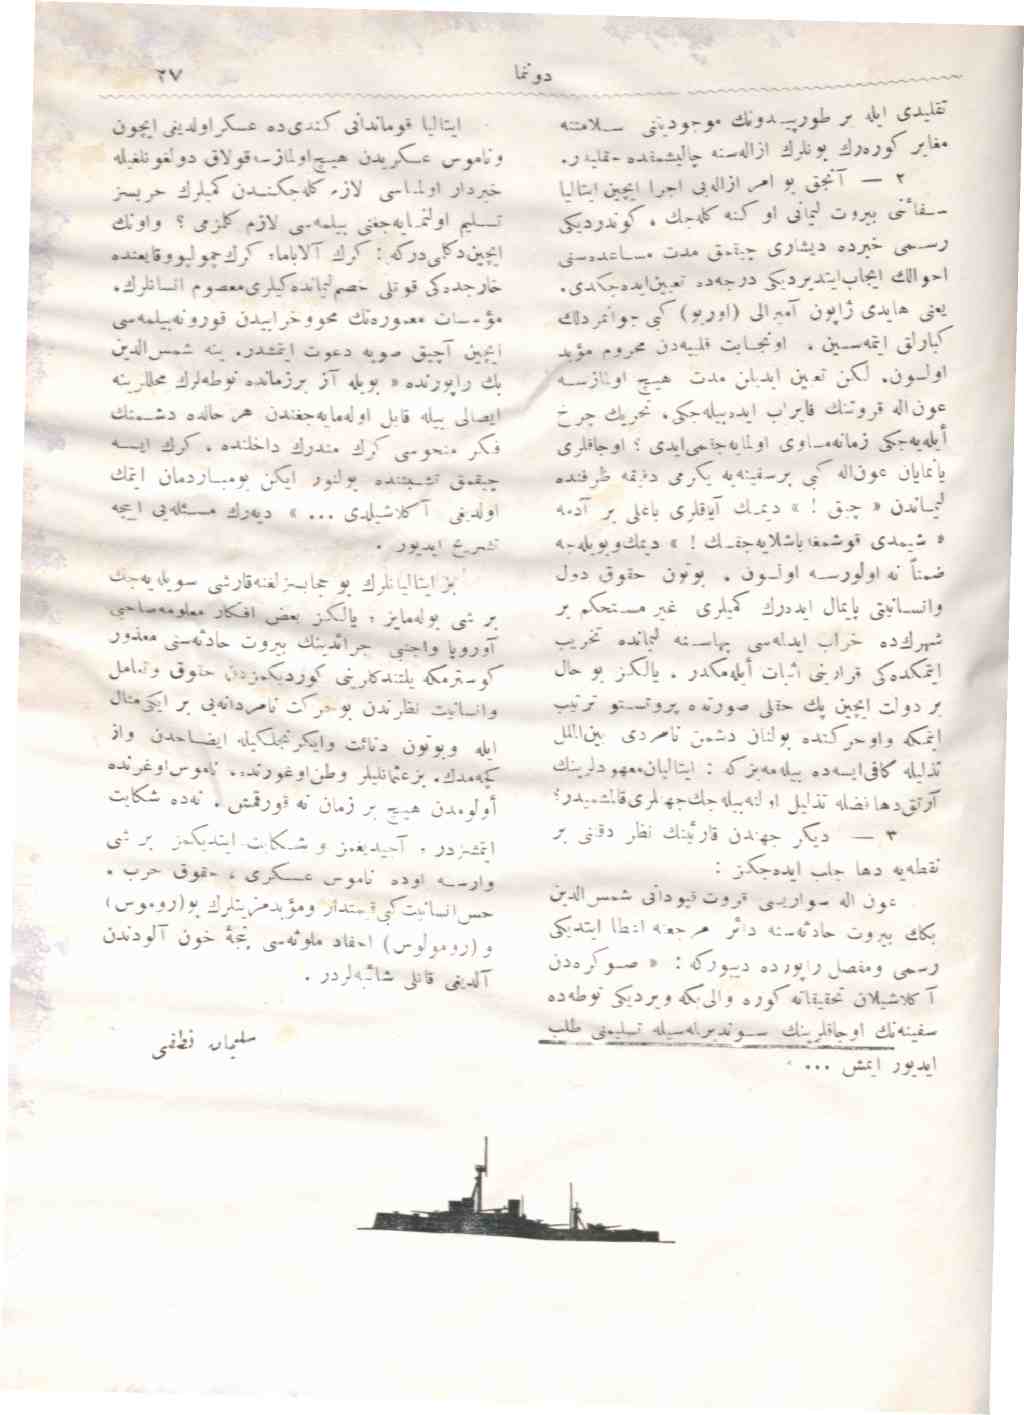 دونما
٢٧
تقلیدی ایله بر طورپیدونك موجودیتنی سلامتنه
مغایر كوره‌رك بونلرك ازاله‌سنه چالیشمقده حقلیدر.
٢ — آنجق بو امر ازاله‌یی اجرا ایچین ایتالیا
سفائنی بیروت لیمانی او كنه كله‌جك . كوندردیكی
رسمی خبرده دیشاری چیقمق مدت مساعده‌سنی
احوالك ایجاب ایتدیردیكی درجه‌ده تعیین ایده‌جكدی.
یعنی هایدی ژاپون آمیرالی (اوریو) كبی جوانمردلك
كبارلق ایتمه‌سین . اونجابت قلبیه‌دن محروم مؤبد
اولسون. لكن تعیین ایدیلن مدت هیچ اولمازسه
عون‌الله قروتنك فایراب ایده‌بیله‌جكی. تحریك چرخ
أیله‌یه‌جكی زمانه مساوی اولمایه‌جقمی‌ایدی ؟ اوجاقلری
یانمایان عون‌الله كبی برسفینه‌یه یكرمی دقیقه ظرفنده
لیماندن « چیق ! » دیمك آیاقلری باغلی بر آدمه
« شیمدی قوشمغه باشلایه‌جقسك ! » دیمك‌و بویله‌جه
ضمناً نه اولورسه اولسون . بوتون حقوق دول
وانسانیتی پایمال ایده‌رك كمیلری غیر مستحكم بر
شهرك‌ده خراب ایدلمه‌سی بهاسنه لیمانده تخریب
ایتمكده‌كی قرارینی اثبات أیله‌مكدر . یالكز بو حال
بر دولت ایچین پك حقلی صورتده پروتستو ترتیب
ایتمكه واوحركنده بولنان دشمن نامردی بین‌الملل
تذلیله كافی‌ایسه‌ده بیله‌مه‌یزكه : ایتالیان‌معهودلرینك
آرتق‌دها فضله تذلیل اولنه‌بیله‌جك‌جهتلری‌قالمشمیدر؟
٣ — دیگر جهتدن قارئینك نظر دقتنی بر
نقطه‌یه دها جلب ایده‌جكز :
عون الله سواریسی قروت قپودانی شمس‌الدین
بكك بیروت حادثه‌سنه دائر مرجعنه اعطا ایتدیكی
رسمی ومفصل راپورده دییوركه : « صوكره‌دن
آ كلاشیلان تحقیقاته كوره والی‌بكه ویردیكی نوطه‌ده
سفینه‌نك اوجاقلرینك سوندیرلمه‌سیله تسلیمنی طلب
ایدییور ایمش ...
ایتالیا قوماندانی كندی‌ده عسكر اولدیغی ایچون
وناموس عسكریدن هیچ‌اولمازسه‌قولاق دولغونلغیله
خبردار اولماسی لازم كله‌جكندن كمیلرك حربسز
تسلیم اولنمایه‌جغنی بیلمه‌سی لازم كلمزمی ؟ واونك
ایچین‌دكلمی‌دركه : كرك آلاباما، كرك‌چمولپووقایعنده
خارجده‌كی قوتلی خصم‌لیمانده‌كیلری‌معصوم انسانلرك.
مؤسسات معموره‌نك محووخرابیدن قورونه‌بیلمه‌سی
ایچین آچیق صویه دعوت ایتمشدر. ینه شمس‌الدین
بك راپورنده « بویله آز برزمانده نوطه‌لرك محللرینه
ایصالی بیله قابل اوله‌مایه‌جغندن هر حالده دشمنك
فكر منحوسی كرك مندرك داخلنده . كرك ایسه
چیقمق تشبثنده بولنور ایكن بومباردمان ایتمك
اولدیغی آ كلاشیلدی ... » دیه‌رك مسئله‌یی اییجه
تشریح ایدیور .
بز ایتالیانلرك بو حجابسزلغنه‌قارشی سویله‌یه‌جك
بر شی بوله‌مایز ؛ یالكز بعض افكار معلومه‌صاحبی
آوروپا واجنبی جرائدینك بیروت حادثه‌سنی معذور
كوسترمكه یلتندكلرینی كوردیكمزدن حقوق وتعامل
وانسانیت نظرندن بوحركت نامردانه‌یی بر ایكی‌مثال
ایله وبوتون دنائت وایكرنجلكیله ایضاحدن واز
كچه‌مدك. بزعثمانلیلر وطن‌اوغورنده، ناموس‌اوغرنده
أولومدن هیچ بر زمان نه قورقمش . نه‌ده شكایت
ایتمشزدر . آجیدیغمز و شكایت ایتدیكمز بر شی
وارسه اوده ناموس عسكری ، حقوق حرب .
حس‌انسانیت‌كبی‌قیمتدار ومؤبدمزیتلرك بو(روموس)
و (رومولوس) احفاد ملوثه‌سی پنجهٔ خون آلودندن
آلدیغی قانلی شائبه‌لردر .
سلیمان نطقی